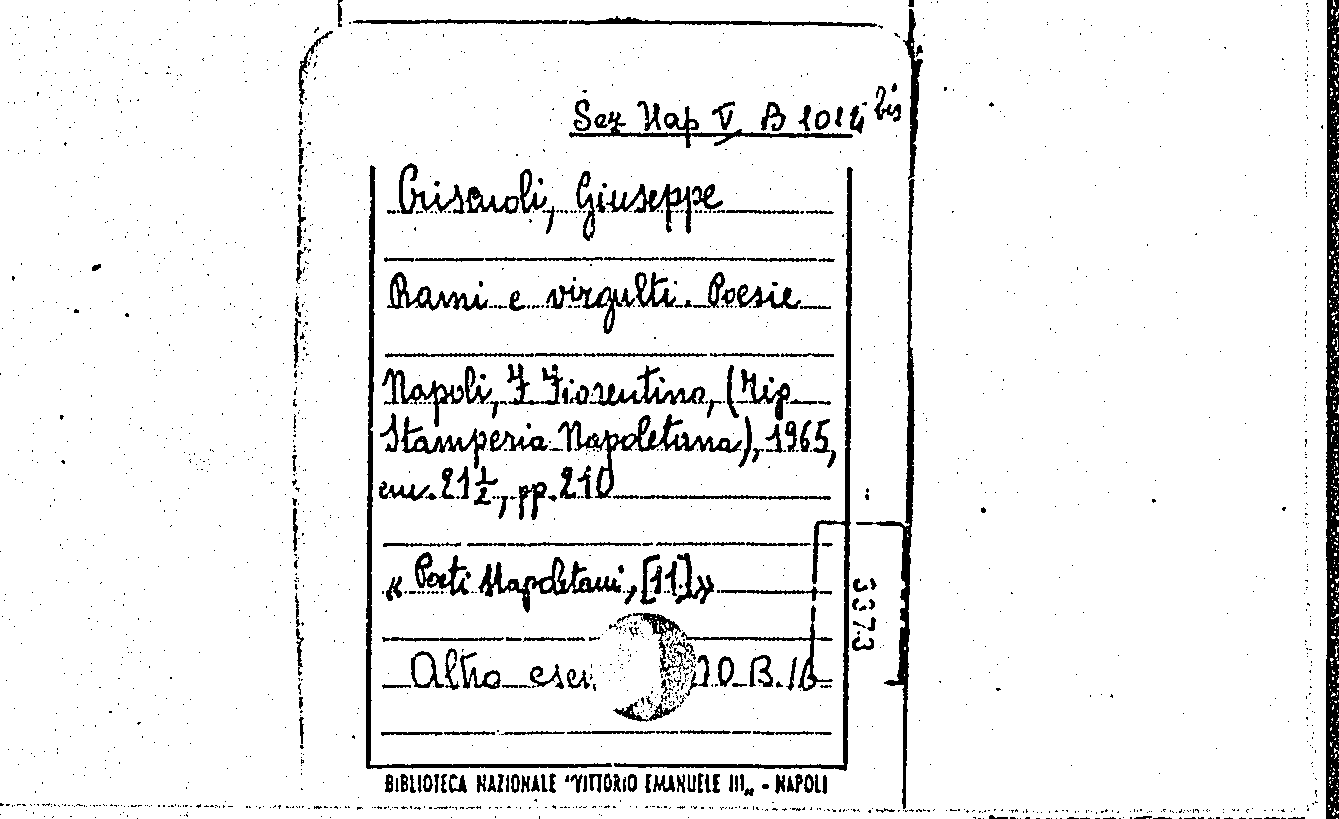 Sez Nap V B 1014 bis
Criscuoli, Giuseppe
Rami e virgulti. Poesie
Napoli, F Fiorentino, (Tip
Stamperia Napoletana), 1965,
cm. 21 1/2, pp. 210
« Poeti Napoletani, [11] »
3373
Altro 10 B.
BIBLIOTECA NAZIONALE "VITTORIO EMANUELE III„ - NAPOLI